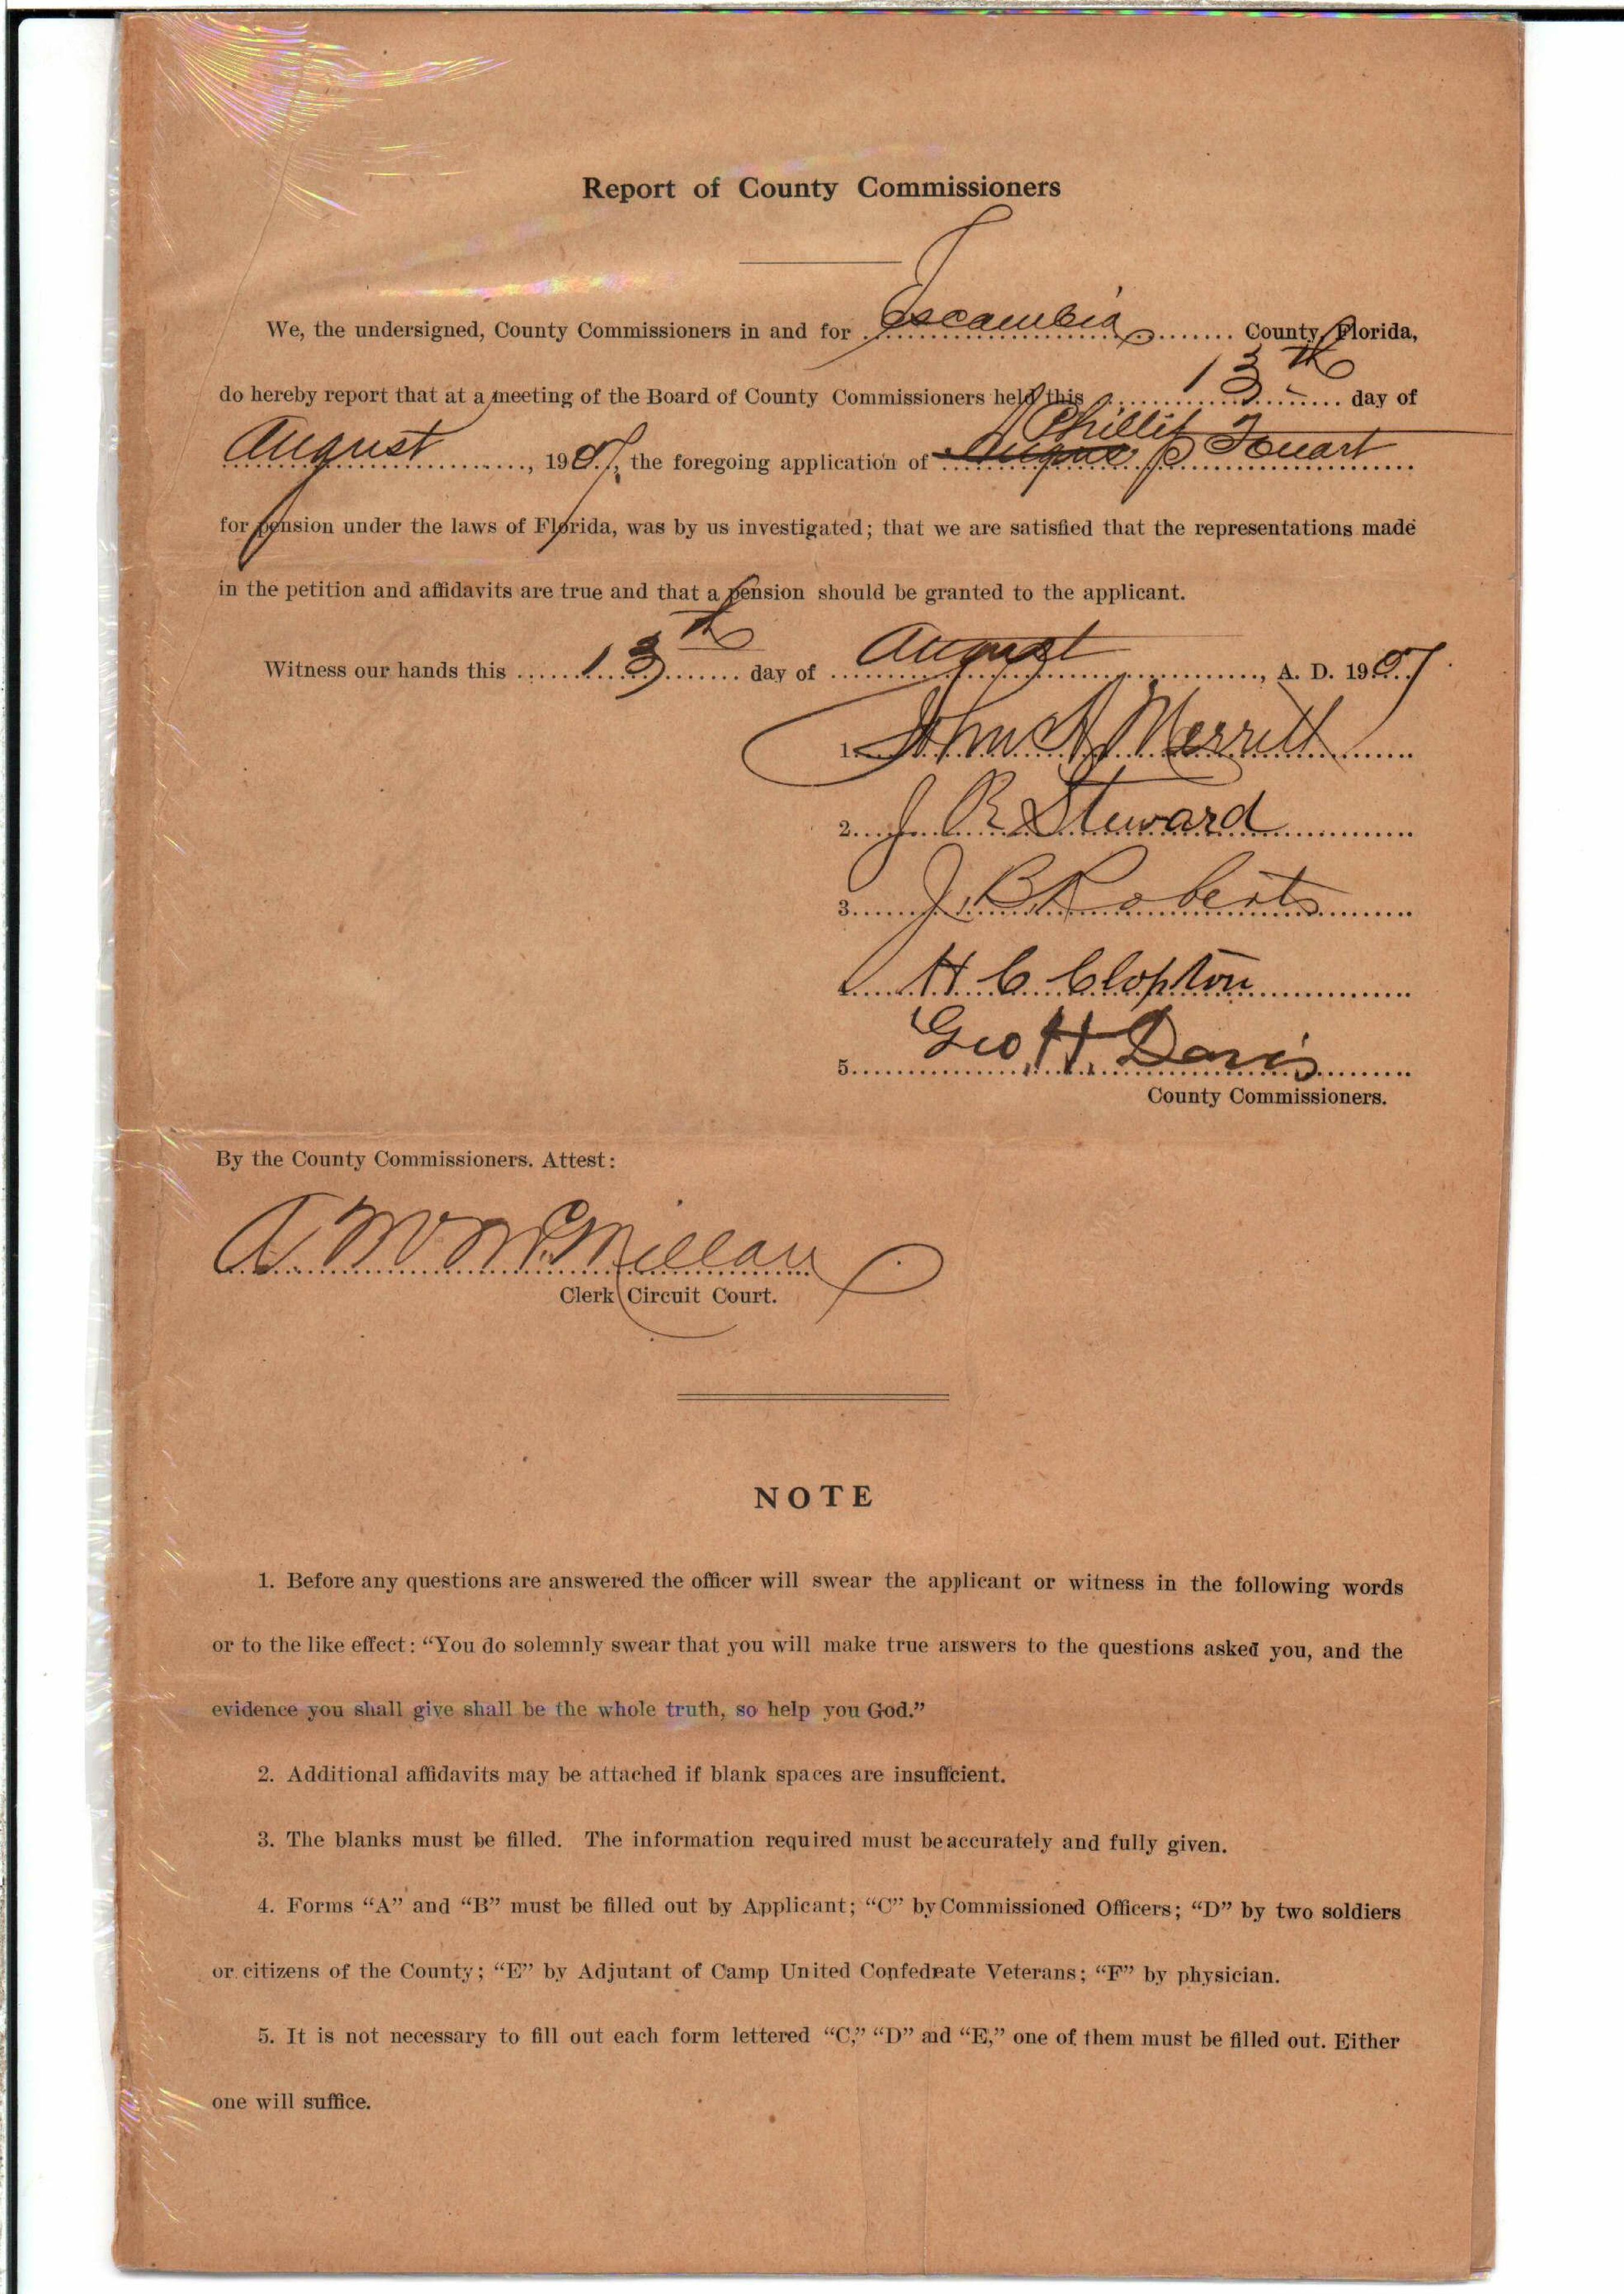 Report of County Commissioners
We, the undersigned, County Commissioners in and for Escambia County, Florida,
do hereby report that at a meeting of the Board of County Commissioners held this 13th day of
Phillip
August, 1907, the foregoing application of P Touart
for pension under the laws of Florida, was by us investigated; that we are satisfied that the representations made
in the petition and affidavits are true and that a pension should be granted to the applicant.
Witness our hands this 13th day of August, A. D. 1907
1. John A Merritt
2. J R Steward
3. J. B. Roberts
H C Clopton
5. Geo H. Davis
County Commissioners.
By the County Commissioners. Attest:
A. M. McMillan
Clerk Circuit Court.
NOTE
1. Before any questions are answered the officer will swear the applicant or witness in the following words
or to the like effect: “You do solemnly swear that you will make true answers to the questions asked you, and the
evidence you shall give shall be the whole truth, so help you God.”
2. Additional affidavits may be attached if blank spaces are insufficient.
3. The blanks must be filled. The information required must be accurately and fully given.
4. Forms “A” and “B” must be filled out by Applicant; “C” by Commissioned Officers; “D” by two soldiers
or citizens of the County; “E” by Adjutant of Camp United Confederate Veterans; “F” by physician.
5. It is not necessary to fill out each form lettered “C,” “D” and “E,” one of them must be filled out. Either
one will suffice.